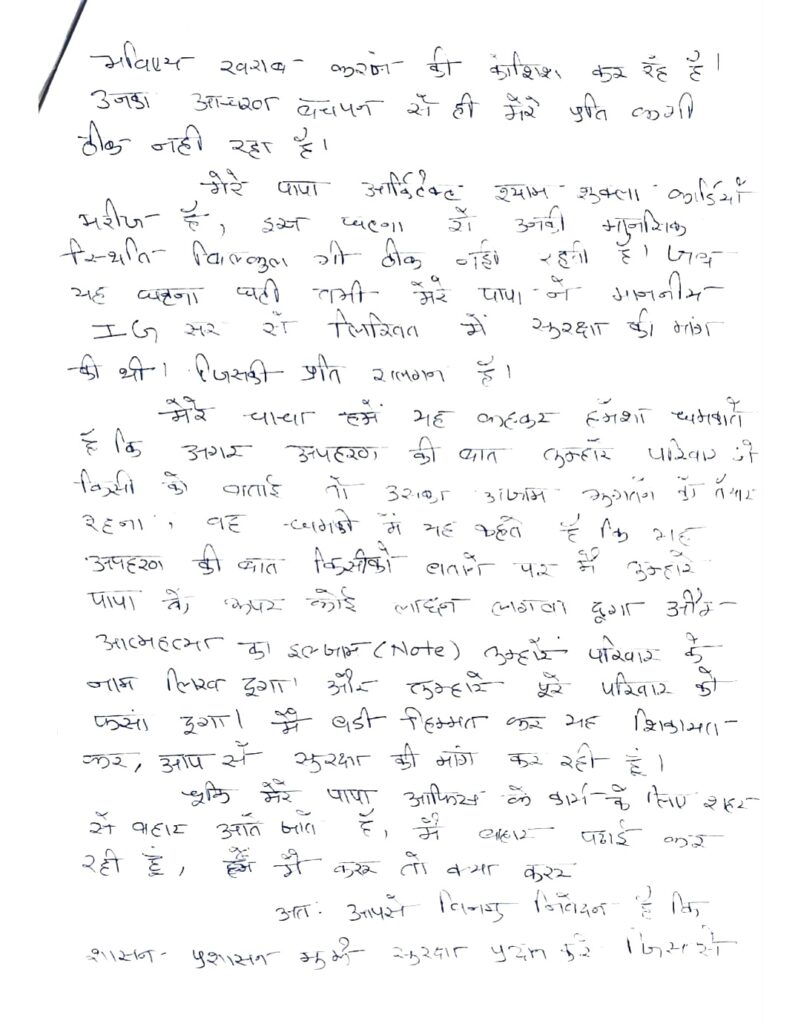 भविष्य खराब करने की कोशिश कर रहे है।
उनका आचरण बचपन से ही मेरे प्रति कभी
ठीक नही रहा है।
मेरे पापा आर्किटेक्ट श्याम शुक्ला कार्डियों
मरीज है, इस घटना से उनकी मानसिक
स्थिति बिल्कुल भी ठीक नही रहती है। जब
यह घटना घटी तभी मेरे पापा ने माननीय
IG सर से लिखित में सुरक्षा की मांग
की थी। जिसकी प्रति संलग्न है।
मेरे चाचा हमें यह कहकर हमेंशा धमकाते
है कि अगर अपहरण की बात तुम्हारे परिवार ने
किसी को बताई तो उसका अंजाम भुगतने को तैयार
रहना, वह धमकी में यह कहते है कि यह
अपहरण की बात किसीको बताने पर मैं तुम्हारे
पापा के ऊपर कोई लांछन लगवा दूगा और
आत्महत्या का इल्जाम (Note) तुम्हारे परिवार के
नाम लिख दूगा। और तुम्हारे पूरे परिवार को
फसां दूगा। मैं बडी हिम्मत कर यह शिकायत
कर, आप से सुरक्षा की मांग कर रही हूं।
चूकि मेरे पापा आफिस के कार्य के लिए शहर
से बाहर आते जाते है, मैं बाहर पढाई कर
रही हूं, मैं करू तो क्या करू
अतः आपसे विनम्र निवेदन है कि
शासन प्रशासन मुझे सुरक्षा प्रदान करे जिससे